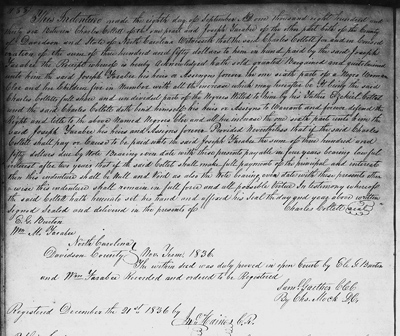 This Indenture made the eighth day of September A.D. one thousand eight hundred and
thirty six Between Charles Collett of the one part and Joseph Farabee of the other part both of the County
of Davidson and State of North Carolina Witnesseth that the said Charles Collett for and in consid
eration of the sum of three hundred and fifty dollars to him in hand paid by the said Joseph
Farabee the Receipt whereof is hereby acknowledged hath sold granted Bargained and
unto the said Joseph Farabee his heirs or Assigns forever his one sixth part of a Negro Woman
and her Children in Number with all the increase which may hereafter be
Charles Colletts full share and undivided part of the Negroes Willed to them by his Father
and the said Charles Collett doth bind himself his heirs or Assigns to Warrant and forever defend the
Right and title to the above Named Negroes and all the increase the one sixth part unto him the
said Joseph Farabee his heirs and Assigns forever Provided Nevertheless that if the said Charles
Collett shall pay or Cause to be paid unto the said Joseph Farabee the sum of three hundred and
fifty dollars due by Note Bearing even date with these presents payable in four years
interest after two years that if the said Collett shall make full payment of the principal and interest
then this indenture shall be Null and Void as also the Note bearing even date with these presents other
wise this indenture shall remain in full force and all possible virtue In testimony whereof
the said Collett hath hereunto set his hand and affixed his Seal the day and year above written
Signed Sealed and delivered in the presents of Charles Collett (Seal)
Wm M. Farabee
North Carolina
Davidson County Nov Term, 1836.
The within deed was duly proved in open Court by
and Wm Farabee Recorded and ordered to be Registered
Saml Gaither Clk
By Chs. Mock D.C.
Registered December the 21st 1836 by